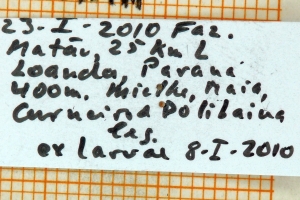 23-I-2010 Faz.
Matão, 25 km L
Loanda, Paraná
400m. Mielke, Maia,
Carneiro & Politaina
leg.
ex larvae 8-I-2010